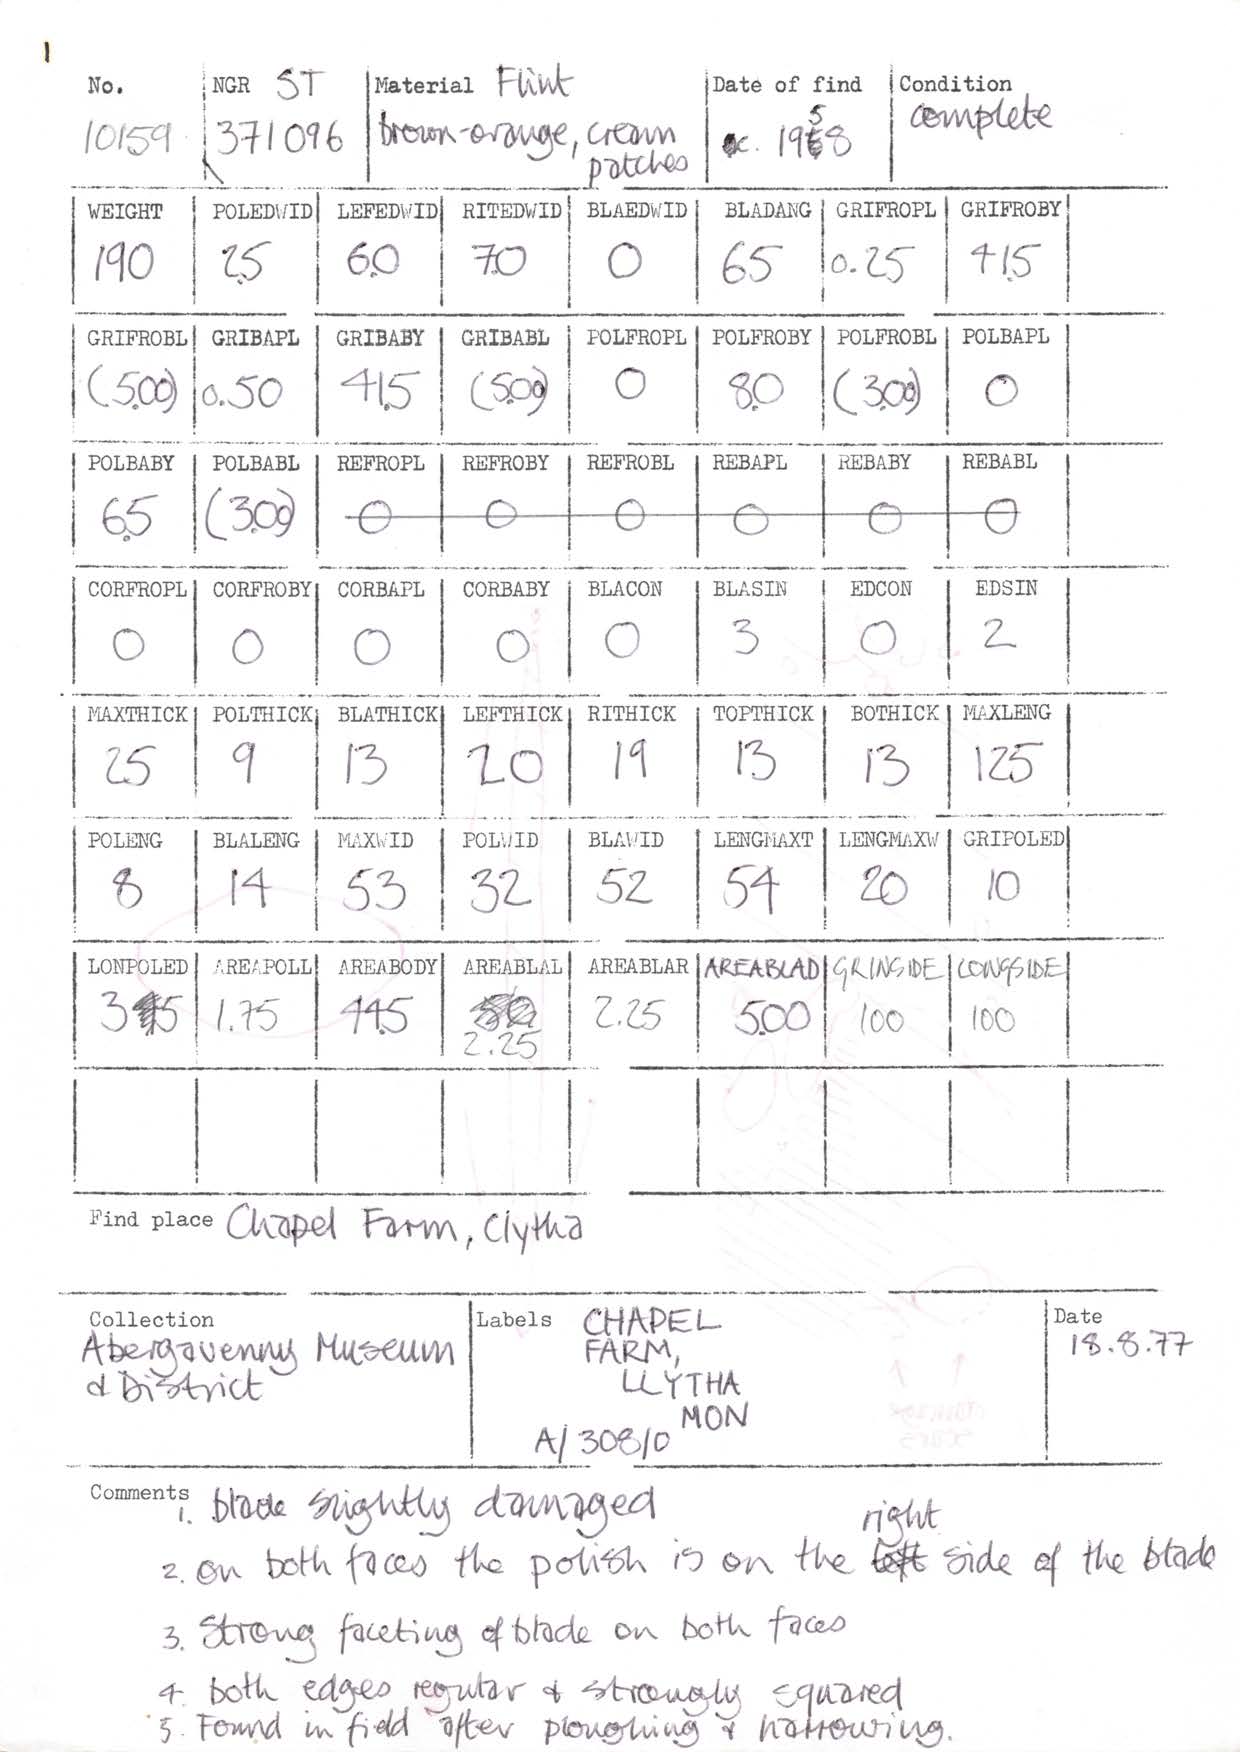 1
No. NGR ST Material Flint Date of find Condition
10159 371096 brown-orange, cream patches c. 1958 complete
WEIGHT POLEDWID LEFEDWID RITEDWID BLAEDWID BLADANG GRIFROPL GRIFROBY
190 2.5 6.0 7.0 0 65 0.25 41.5
GRIFROBL GRIBAPL GRIBABY GRIBABL POLFROPL POLFROBY POLFROBL POLBAPL
(5.00) 0.50 41.5 (5.00) 0 8.0 (3.00) 0
POLBABY POLBABL REFROPL REFROBY REFROBL REBAPL REBABY REBABL
6.5 (3.00) 0 0 0 0 0 0
CORFROPL CORFROBY CORBAPL CORBABY BLACON BLASIN EDCON EDSIN
0 0 0 0 0 3 0 2
MAXTHICK POLTHICK BLATHICK LEFTHICK RITHICK TOPTHICK BOTHICK MAXLENG
25 9 13 20 19 13 13 125
POLENG BLALENG MAXWID POLWID BLAWID LENGMAXT LENGMAXW GRIPOLED
8 14 53 32 52 54 20 10
LONPOLED AREAPOLL AREABODY AREABLAL AREABLAR AREABLAD GRINSIDE LONGSIDE
35 1.75 44.5 2.25 2.25 5.00 100 100
Find place Chapel Farm, Clytha
Collection Labels CHAPEL Date
Abergavenny Museum FARM, 18.8.77
& District LLYTHA
MON
A/308/0
Comments 1. blade slightly damaged
right
2. on both faces the polish is on the left side of the blade
3. Strong faceting of blade on both faces
4. both edges regular & strongly squared
5. Found in field after ploughing & harrowing.